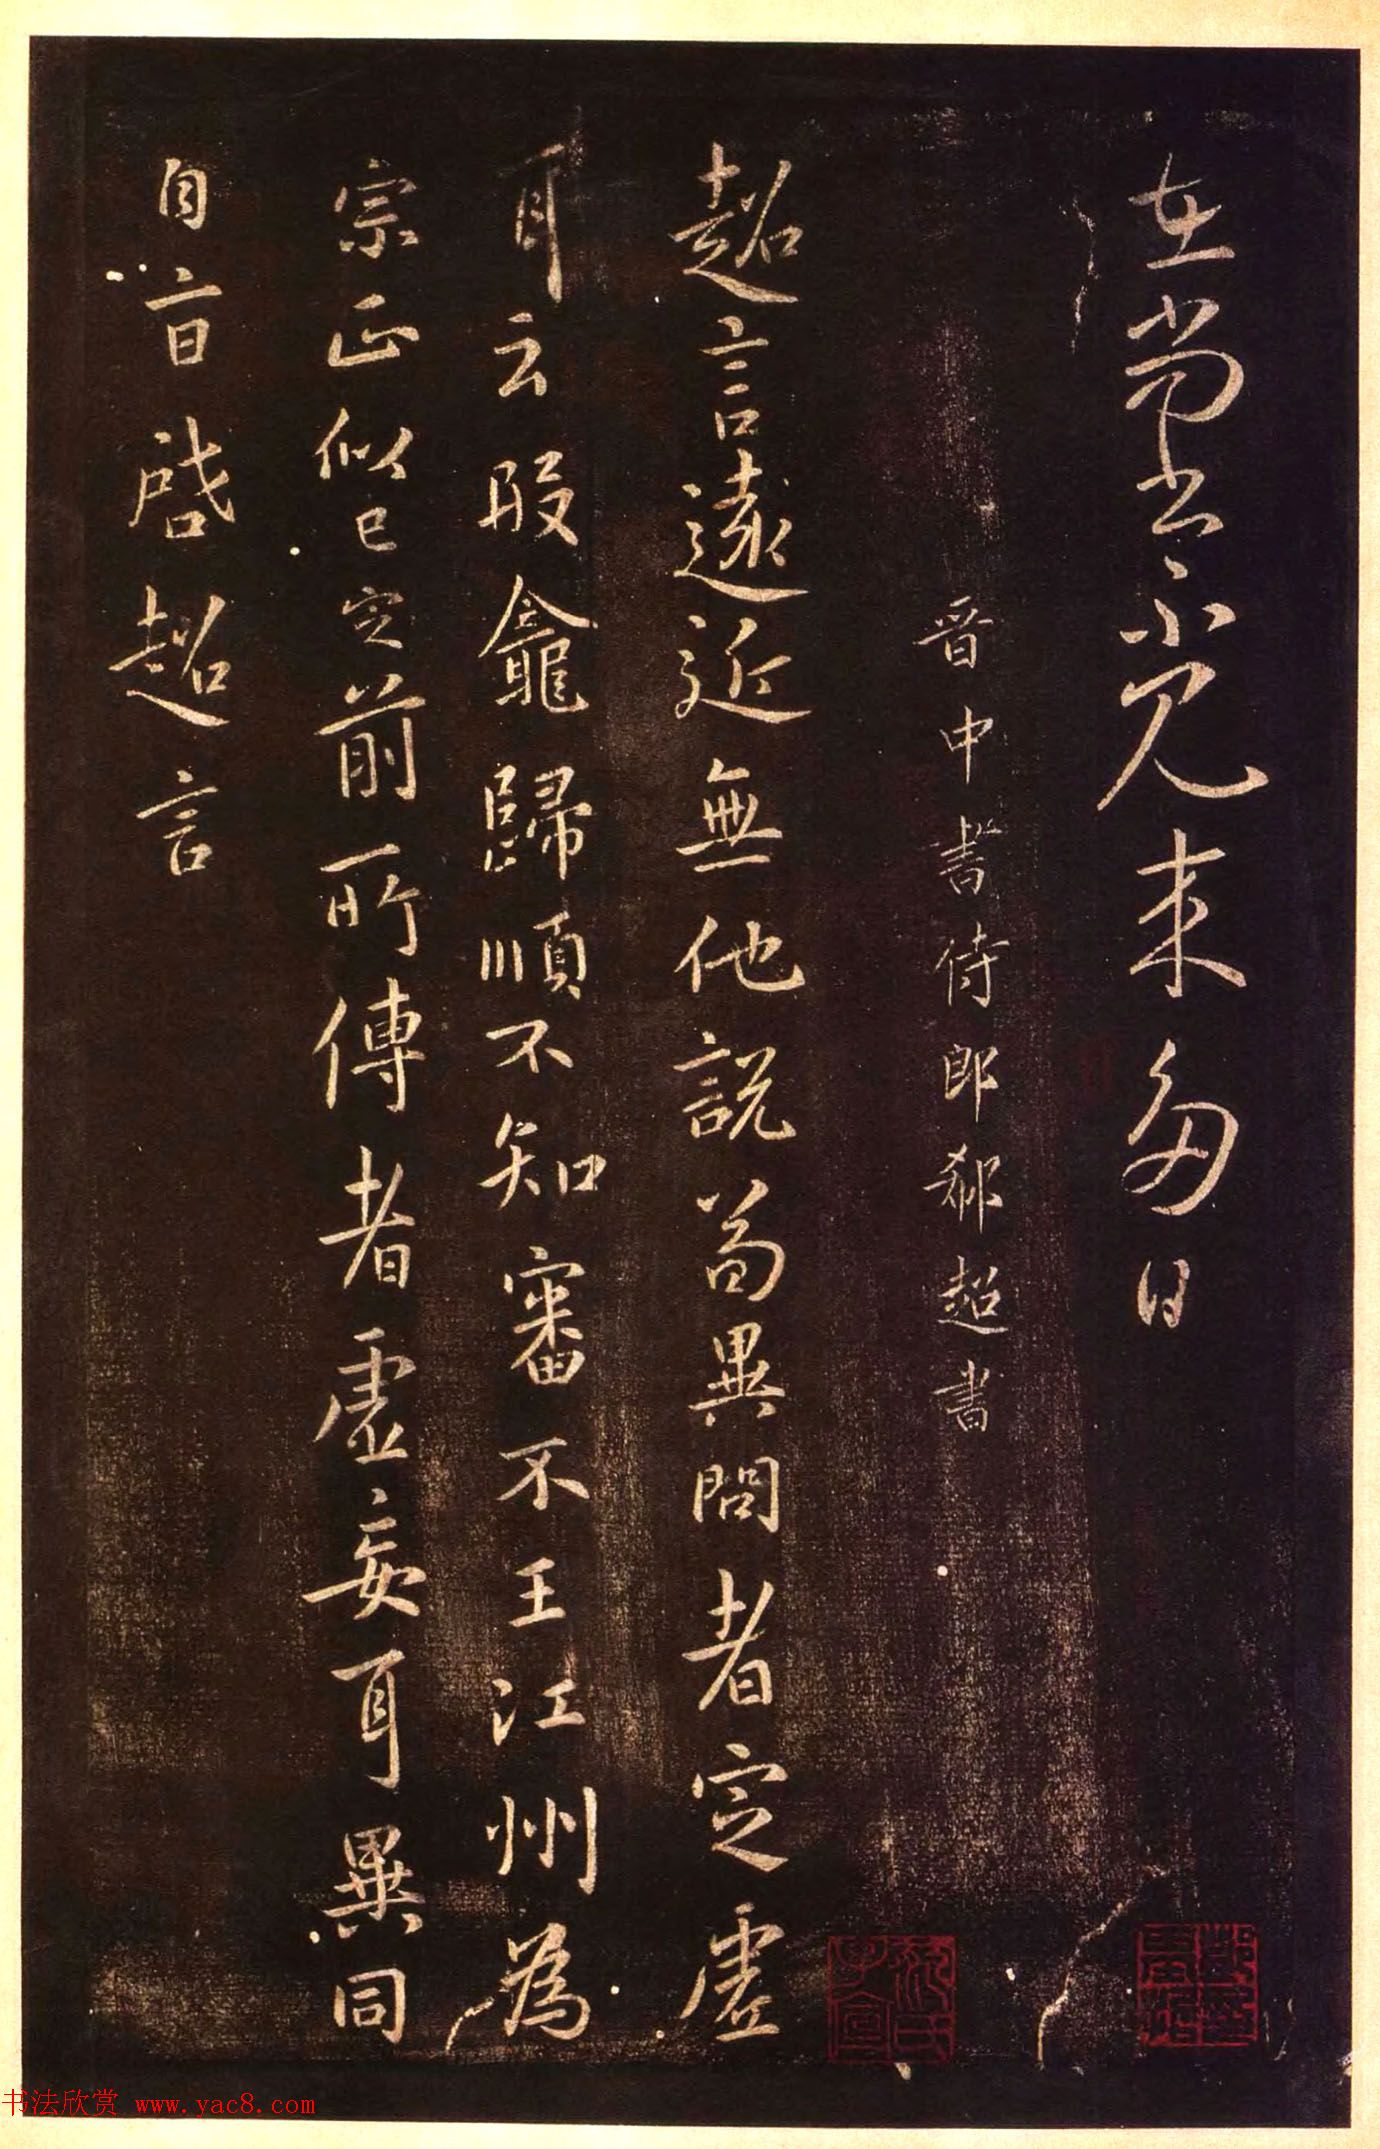 在常公不見来多日
晋中書侍郎郗超書
超言遠近無他說苟異問者定虛
耳云殷龕歸順不知審不王江州為
宗正似已定前所傳者虛妄耳異同
自旨啓超言
书法欣赏 www.yac8.com